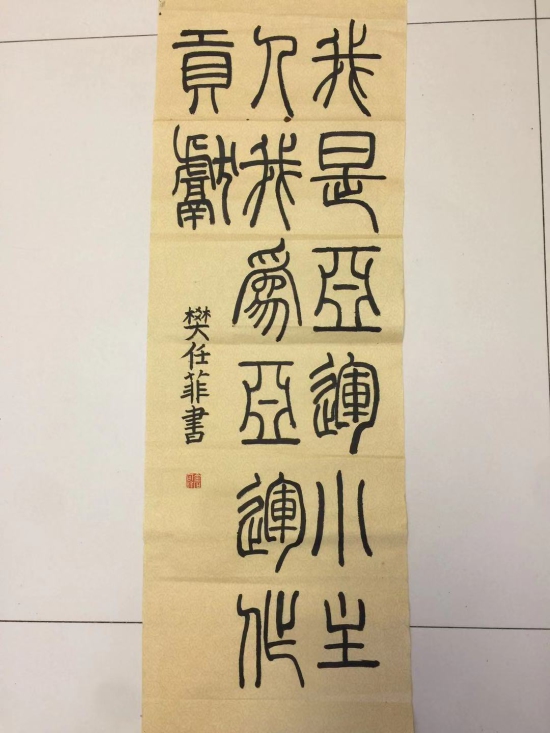 我是亞運小主
人我爲亞運作
貢獻
樊任菲書